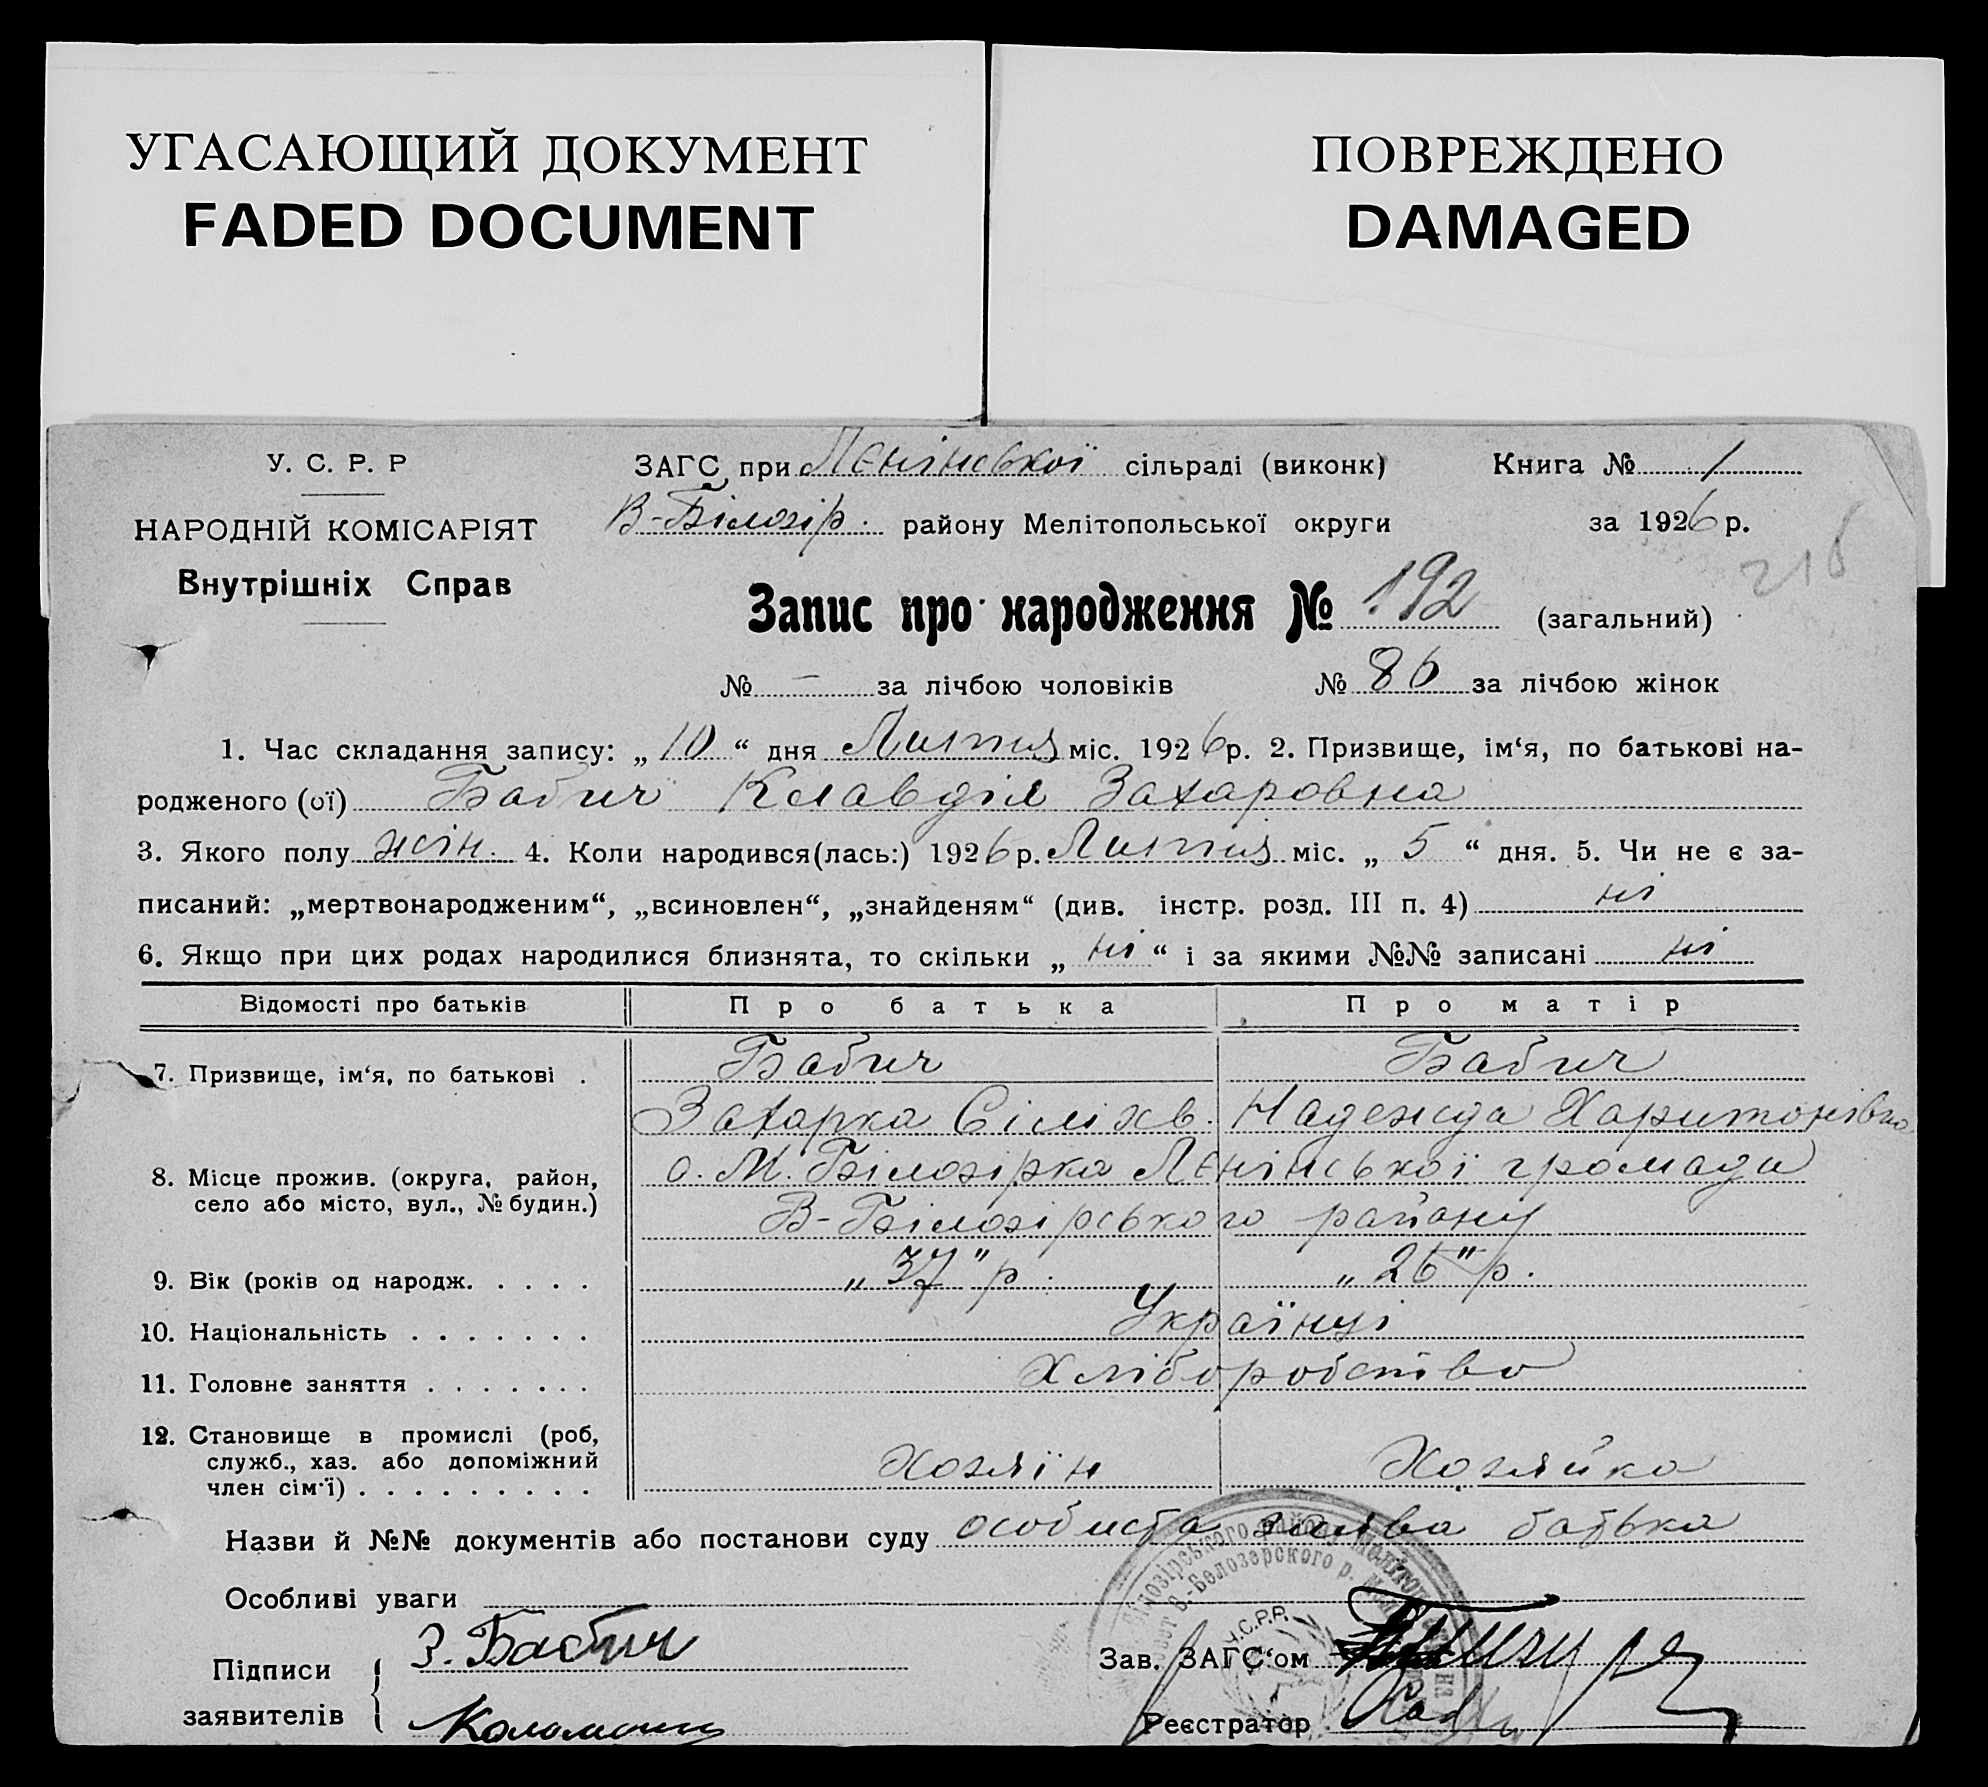 УГАСАЮЩИЙ ДОКУМЕНТ
FADED DOCUMENT
ПОВРЕЖДЕНО
DAMAGED
У. С. Р. Р
НАРОДНІЙ КОМІСАРІЯТ
Внутрішніх Справ
ЗАГС при Ленінської сільраді (виконк) Книга № 1
В-Білозір. району Мелітопольської округи за 1926 р.
216
Запис про народження № 192 (загальний)
№ — за лічбою чоловіків № 86 за лічбою жінок
1. Час складання запису: „10“ дня Липня міс. 1926 р. 2. Призвище, ім‘я, по батькові на-
родженого (ої) Бабич Клавдія Захаровна
3. Якого полу жін. 4. Коли народився(лась:) 1926 р. Липня міс. „5“ дня. 5. Чи не є за-
писаний: „мертвонародженим“, „всиновлен“, „знайденям“ (див. інстр. розд. III п. 4) ні
6. Якщо при цих родах народилися близнята, то скільки „ні“ і за якими №№ записані ні
Відомості про батьків Про батька Про матір
7. Призвище, ім‘я, по батькові . Бабич Бабич
Захарка Надежда Харитонівна
8. Місце прожив. (округа, район, с. М. Білозірка Ленінської громади
село або місто, вул., № будин.) В-Білозірського району
9. Вік (років од народж. . . . . „37" р. „26" р.
10. Національність . . . . . . . Українці
11. Головне заняття . . . . . . . Хліборобство
12. Становище в промислі (роб,
служб., хаз. або допоміжний Хозяїн Хозяйка
член сім‘ї) . . . . . . . . .
Назви й №№ документів або постанови суду особиста заява батька
Особливі уваги
Підписи З. Бабич Зав. ЗАГС‘ом
заявителів Реєстратор
У.С.Р.Р.